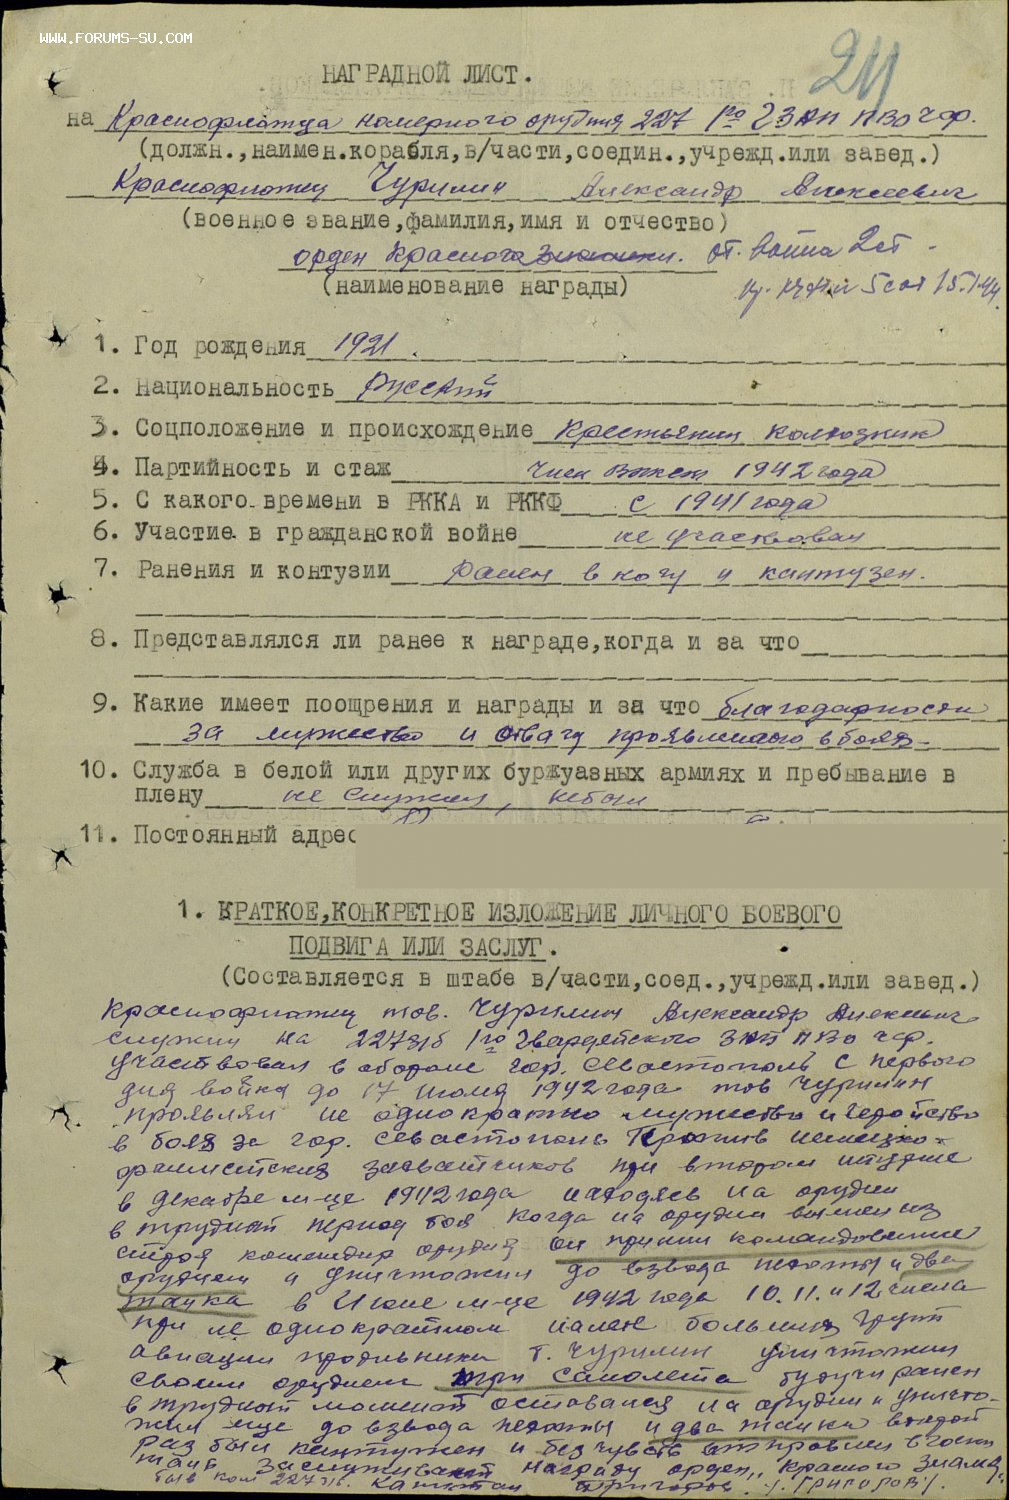 WWW.FORUMS-SU.COM
24
НАГРАДНОЙ ЛИСТ.
на Краснофлотца номерного орудия 227 1го ЗАП ПВО ЧФ.
(должн.,наимен.корабля,в/части,соедин.,учрежд.или завед.)
Краснофлотец Чурилин Александр Алексеевич
(военное звание,фамилия,имя и отчество)
орден Красного Знамени. От. война 2 ст
(наименование награды)
1. Год рождения 1921.
2. Национальность Русский
3. Соцположение и происхождение Крестьянин колхозник
4. Партийность и стаж Член ВЛКСМ 1942 года
5. С какого времени в РККА и РККФ с 1941 года
6. Участие в гражданской войне не участвовал
7. Ранения и контузии ранен в ногу и кантузен.
8. Представлялся ли ранее к награде,когда и за что
9. Какие имеет поощрения и награды и за что благодарности
за мужество и отвагу проявленного в боях
10. Служба в белой или других буржуазных армиях и пребывание в
плену не служил, небыл
11. Постоянный адрес
1. КРАТКОЕ,КОНКРЕТНОЕ ИЗЛОЖЕНИЕ ЛИЧНОГО БОЕВОГО
ПОДВИГА ИЛИ ЗАСЛУГ.
(Составляется в штабе в/части,соед.,учрежд.или завед.)
Краснофлотец тов. Чурилин Александр Алексеевич
служил на 227 зб 1го Гвардейского ЗАП ПВО ЧФ.
участвовал в обороне гор. Севастополь с первого
дня война до 17 июля 1942 года тов Чурилин
проявлял не однократно мужество и геройство
в боях за гор. Севастополь Против немецко-
фашистских захватчиков при втором штурме
в декабре м-це 1942 года находясь на орудии
в трудный период боя когда на орудии вышел из
строя командир орудия он принял командование
орудием и уничтожил до взвода пехоты и два
танка в Июне м-це 1942 года 10. 11. и 12 числа
при не однократном налете больших групп
авиации противника т. Чурилин уничтожил
своим орудием три самолета будучи ранен
в трудный момент оставался на орудии и уничто-
жил еще до взвода пехоты и два танка второй
раз был кантужен и без чувств отправлен в госп
тань заслуживает награду орден „Красного Знамя"
быв ком 227 зб. Капитан Григоров /ГРИГОРОВ/.